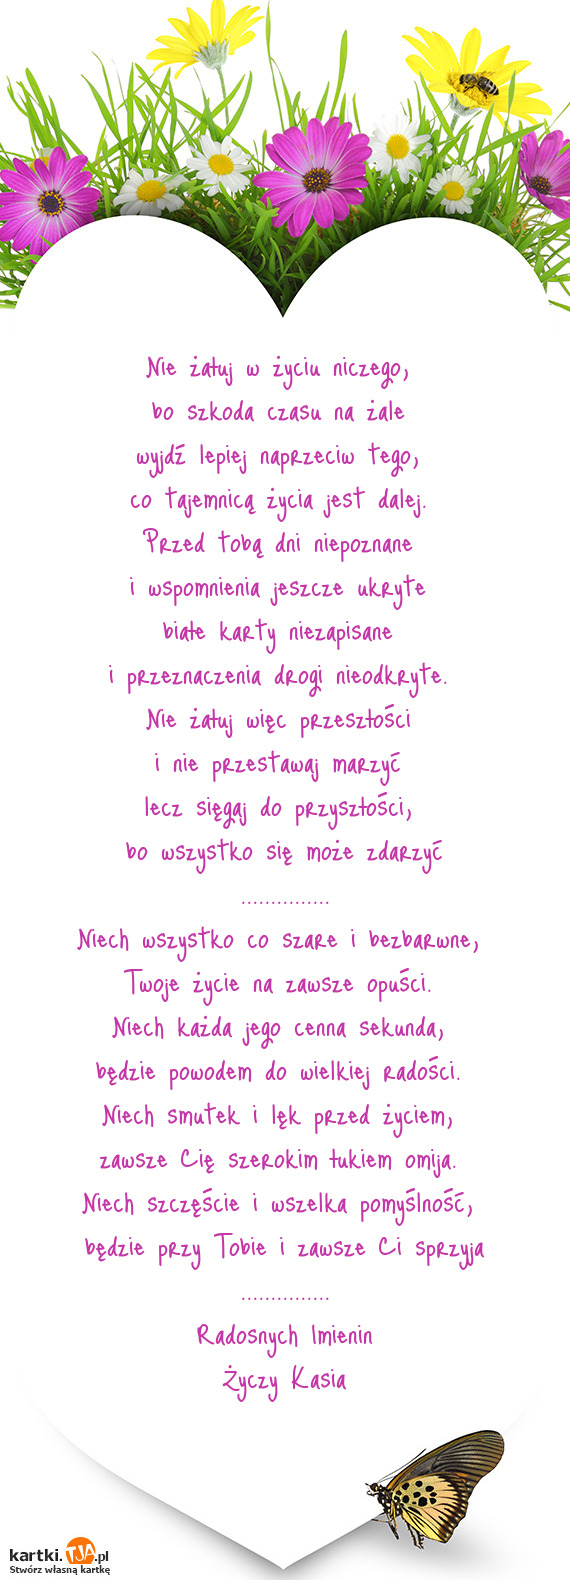 Nie żałuj w życiu niczego,
bo szkoda czasu na żale
wyjdź lepiej naprzeciw tego,
co tajemnicą życia jest dalej.
Przed tobą dni niepoznane
i wspomnienia jeszcze ukryte
białe karty niezapisane
i przeznaczenia drogi nieodkryte.
Nie żałuj więc przeszłości
i nie przestawaj marzyć
lecz sięgaj do przyszłości,
bo wszystko się może zdarzyć
...............
Niech wszystko co szare i bezbarwne,
Twoje życie na zawsze opuści.
Niech każda jego cenna sekunda,
będzie powodem do wielkiej radości.
Niech smutek i lęk przed życiem,
zawsze Cię szerokim łukiem omija.
Niech szczęście i wszelka pomyślność,
będzie przy Tobie i zawsze Ci sprzyja
...............
Radosnych Imienin
Życzy Kasia
kartki.TJA.pl
Stwórz własną kartkę